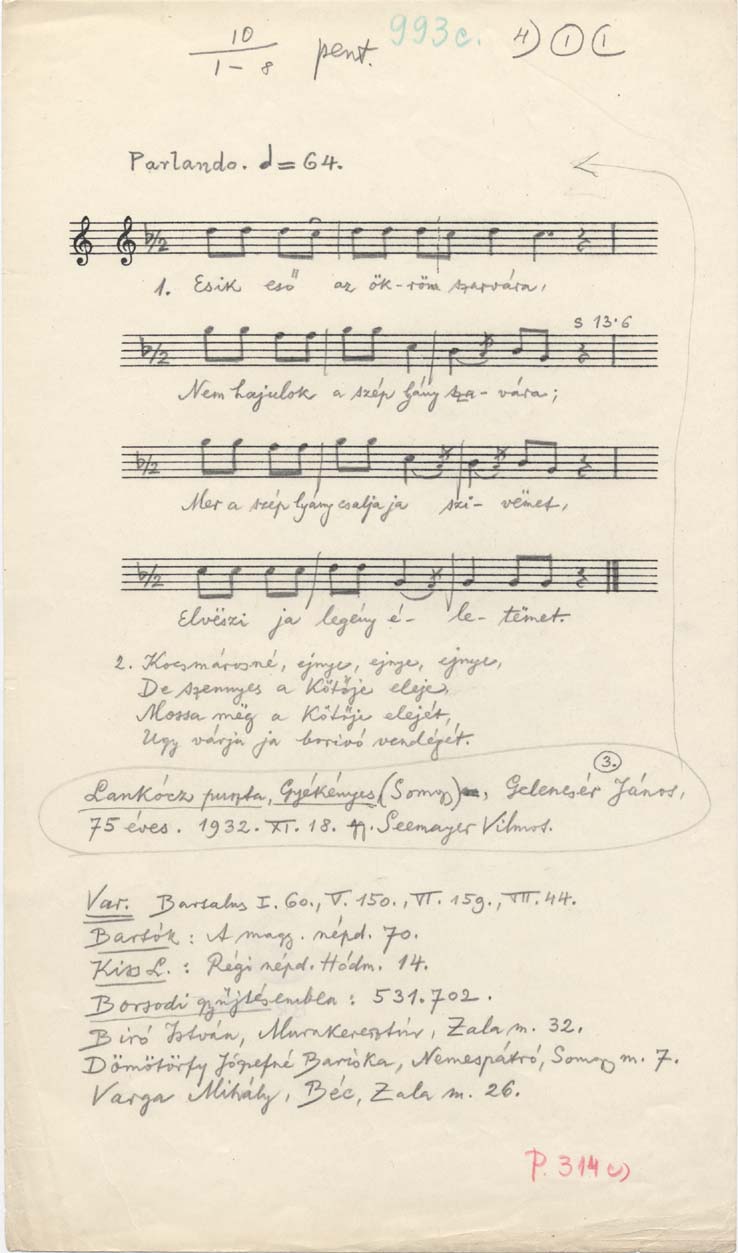 10
1 – 8
pent. 993c. 4) 1 (
Parlando. 𝅗𝅥 = 64.
1. Esik eső az ök-röm szarvára,
s 13·6
Nem hajulok a szép lyány sza- vára;
Mer a szép lyány csalja ja szi- vëmet,
Elvëszi ja legény é- le- tëmet.
2. Kocsmárosné, ejnye, ejnye, ejnye,
De szennyes a kötője eleje,
Mossa mëg a kötője elejét,
Ugy várja ja borivó vendégét.
3.
Lankócz puszta, Gyékényes (Somogy), Gelencsér János,
75 éves. 1932. XI. 18. Gy. Seemayer Vilmos.
Var. Bartalus I. 60., V. 150., VI. 159., VII. 44.
Bartók: A magy. népd. 70.
Kiss L.: Régi népd. Hódm. 14.
Borsodi gyűjtés : 531. 702.
Biró István, Murakeresztúr, Zala m. 32.
Dömötörfy Józsefné Bariska, Nemespátró, Somogy m. 7.
Varga Mihály, Béc, Zala m. 26.
P. 314 c)